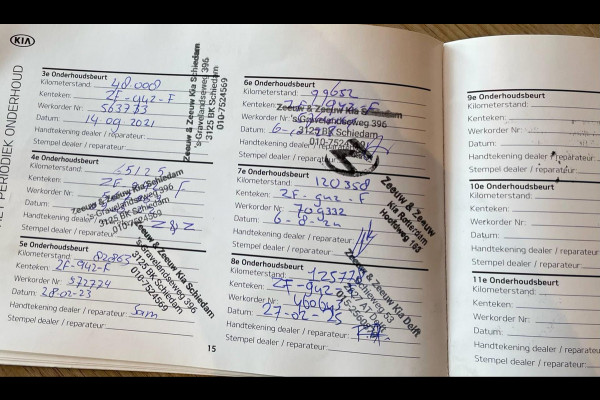 KIA
HET PERIODIEK ONDERHOUD
3e Onderhoudsbeurt
Kilometerstand: 48.008
Kenteken: ZF-942-F
Werkorder Nr: 563783
Datum: 14 09 2021
Handtekening dealer / reparateur:
Stempel dealer / reparateur:
Zeeuw & Zeeuw Kia Schiedam
's Gravelandseweg 396
3125 BK Schiedam
010-7524569
4e Onderhoudsbeurt
Kilometerstand:
Kenteken: ZF
Werkorder Nr:
Datum:
Handtekening dealer / reparateur: Z&Z
Stempel dealer / reparateur:
Zeeuw & Zeeuw Kia Schiedam
's Gravelandseweg 396
3125 BK Schiedam
010-7524569
5e Onderhoudsbeurt
Kilometerstand: 82863
Kenteken: ZF-942-F
Werkorder Nr: 972724
Datum: 28-02-23
Handtekening dealer / reparateur: Sam
Stempel dealer / reparateur:
Zeeuw & Zeeuw Kia Schiedam
's Gravelandseweg 396
3125 BK Schiedam
010-7524569
15
6e Onderhoudsbeurt
Kilometerstand: 99652
Kenteken: ZF-942-F
Werkorder Nr:
Datum: 6-
Handtekening dealer / reparateur:
Stempel dealer / reparateur:
Zeeuw & Zeeuw Kia Schiedam
's Gravelandseweg 396
3125 BK Schiedam
010-7524569
7e Onderhoudsbeurt
Kilometerstand: 120358
Kenteken: ZF-942-F
Werkorder Nr: 709332
Datum: 6-8-24
Handtekening dealer / reparateur:
Stempel dealer / reparateur:
Zeeuw & Zeeuw
Kia Rotterdam
Hoofdweg
8e Onderhoudsbeurt
Kilometerstand:
Kenteken: ZF-942-F
Werkorder Nr:
Datum: 27-02-25
Handtekening dealer / reparateur:
Stempel dealer / reparateur:
Zeeuw & Zeeuw Kia Delft
9e Onderhoudsbeurt
Kilometerstand:
Kenteken:
Werkorder Nr:
Datum:
Handtekening dealer / reparateur:
Stempel dealer / reparateur:
10e Onderhoudsbeurt
Kilometerstand:
Kenteken:
Werkorder Nr:
Datum:
Handtekening dealer / reparateur:
Stempel dealer / reparateur:
11e Onderhoudsbeurt
Kilometerstand:
Kenteken:
Werkorder Nr:
Datum:
Handtekening dealer / reparateur:
Stempel dealer / reparateur: